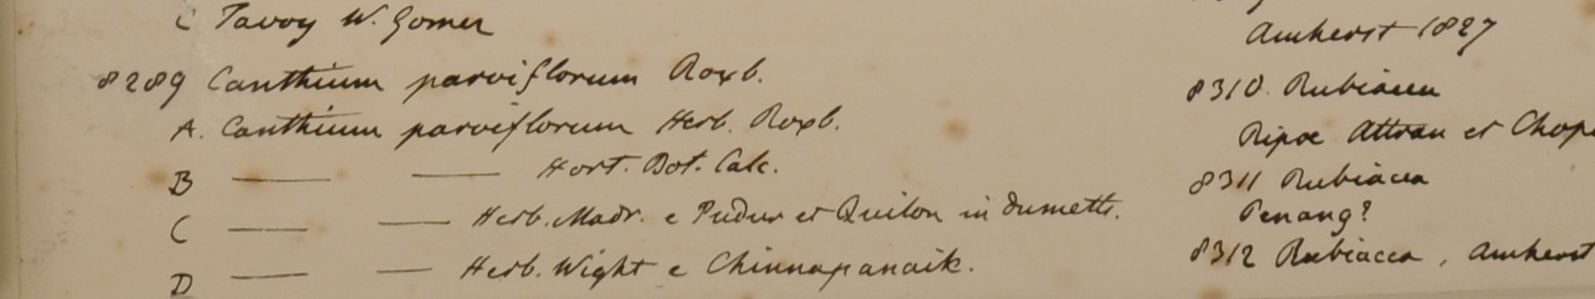 C Tavoy W. Gomez
8289 Canthium parviflorum Roxb.
A. Canthium parviflorum Herb. Roxb.
B — — Hort. Bot. Calc.
C — — Herb. Madr. e Pudur et Quilon in dumetts.
D — — Herb. Wight e Chinnapanaik.
Amherst 1827
8310. Rubiacea
Ripae Attran et Chap
8311 Rubiacea
Penang?
8312 Rubiacea, Amherst